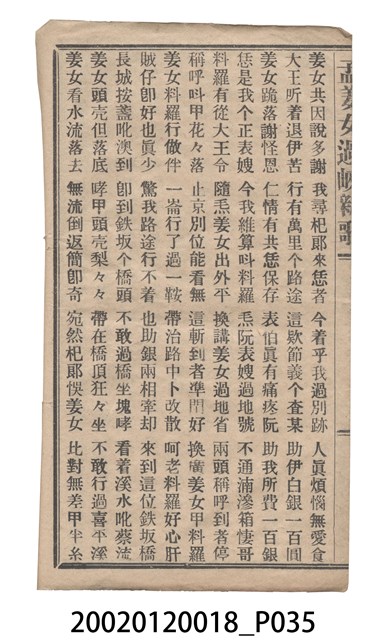 孟姜女過峽新歌
姜女共因說多謝 我尋杞郞來恁者 今着乎我過別跡 人眞煩惱無愛食
大王听着退伊苦 行有萬里个路途 這欵節義个查某 助伊白銀一百圓
姜女跪落謝怪恩 仁情有共恁保存 表伯眞有痛疼阮 助我所費一百銀
恁是我个正表嫂 今我維算呌料羅 烝阮表嫂過地號 不通湳滲箱悽哥
料羅有從大王令 隨烝姜女出外平 換講姜女過地省 兩頭稱呼到者停
稱呼呌甲花々落 止京別位能看無 這斬到者準閗好 換廣姜女甲料羅
姜女料羅行做伴 一崙行了過一鞍 帶治路中卜改散 呵老料羅好心肝
賊仔卽好也眞少 驚我路途行不着 也助銀兩相牽却 來到這位鉄坂橋
長城按盞吪澳到 卽到鉄坂个橋頭 不敢過橋坐塊哮 看着溪水吪蔡流
姜女頭壳但落底 哮甲頭壳梨々々 帶在橋頂狂々坐 不敢行過喜平溪
姜女看水流落去 無流倒返簡卽奇 宛然杞郞悞姜女 比對無差甲半糸
20020120018_P035